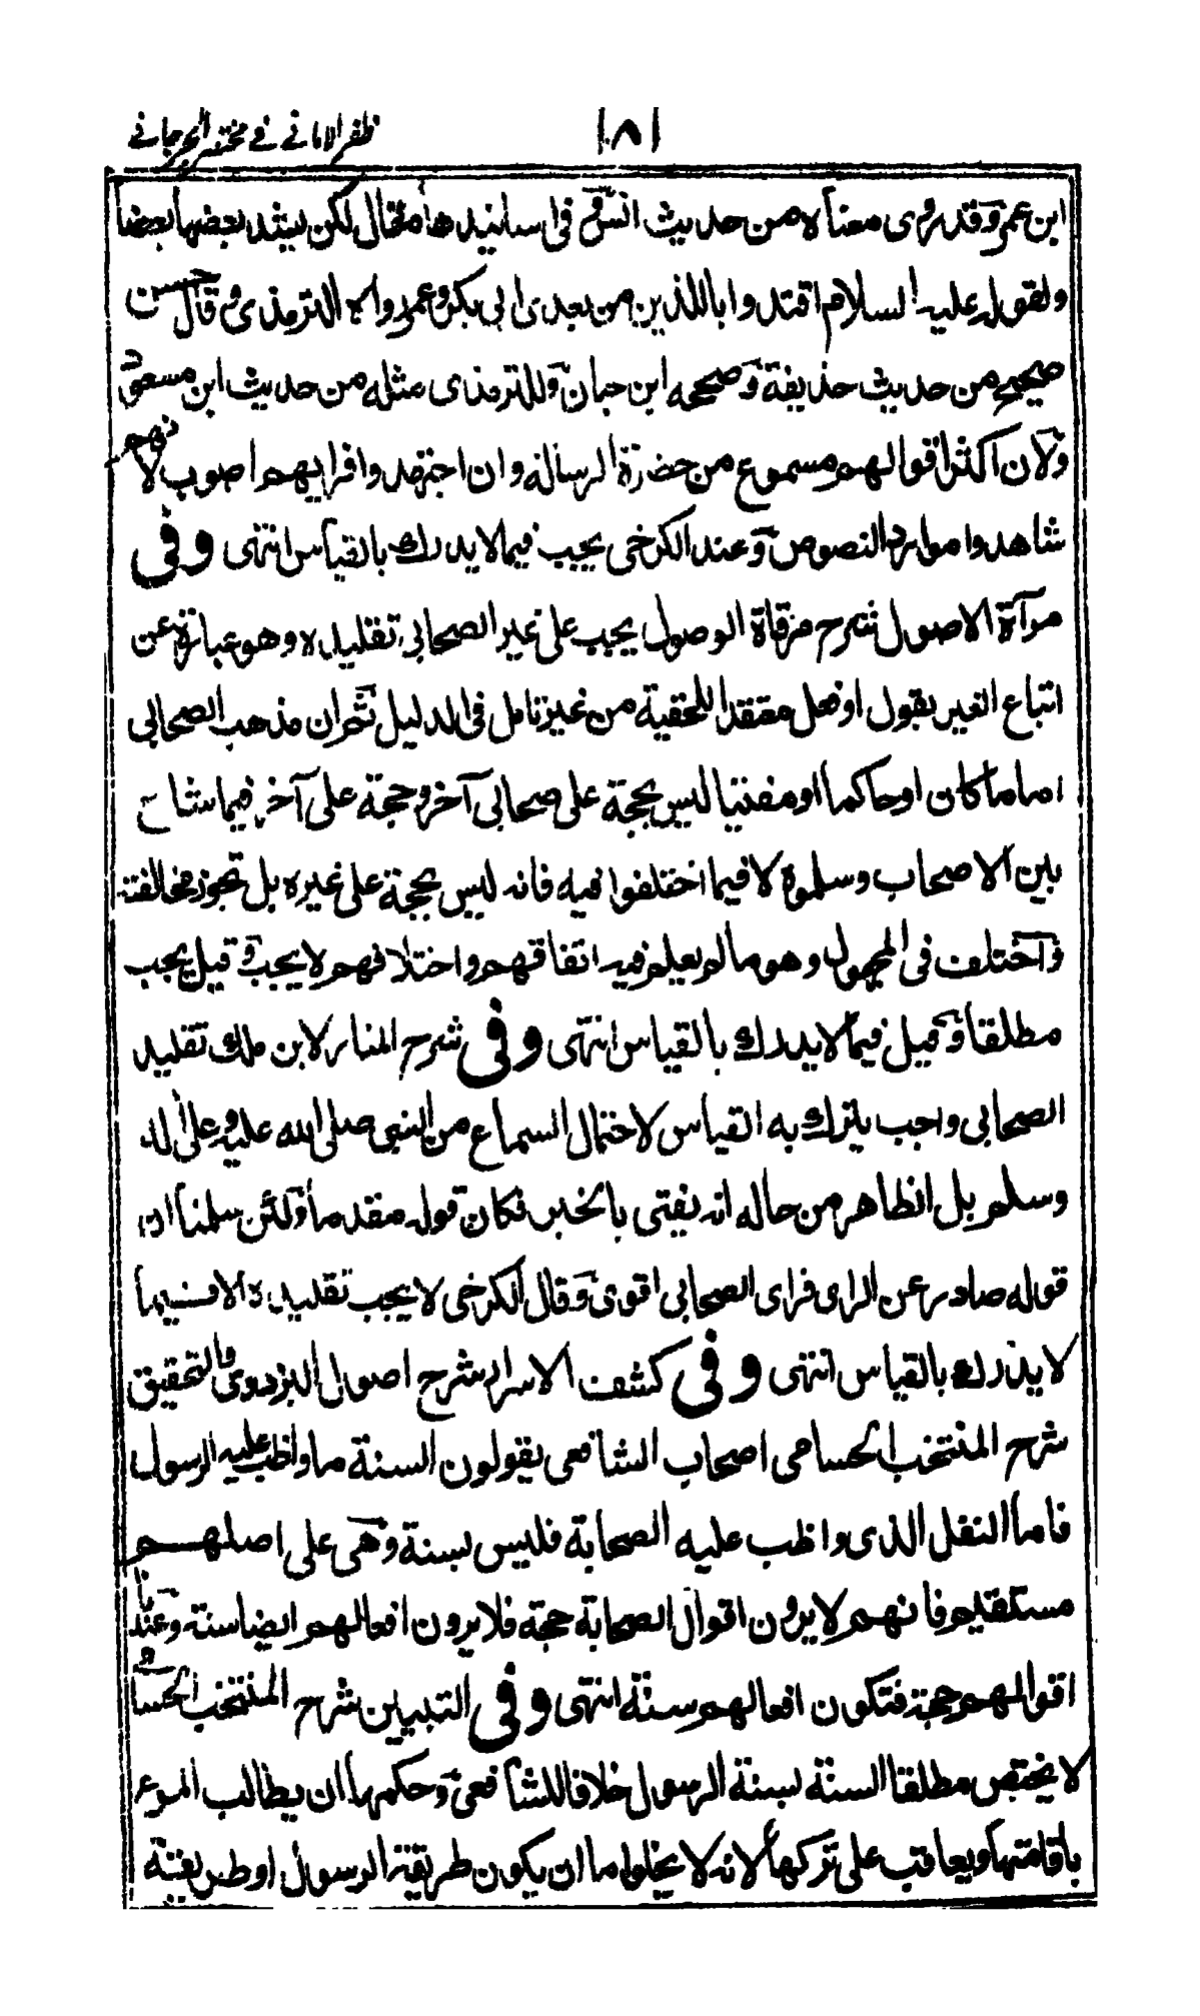 ١٨١ ظفر الاماني في مختصر الجرجاني
ابن عمر وقد روى معناه من حديث انس وفي اسانيدها مقال لكن يشد بعضها بعضا
ولقوله عليه السلام اقتدوا باللذين من بعدى ابي بكر وعمر رواه الترمذى وقال حسن
صحيح من حديث حذيفة وصححه ابن حبان وللترمذى مثله من حديث ابن مسعود
ولان اكثر اقوالهم مسموع من حضرة الرسالة وان اجتهدوا فرايهم اصوب لانهم
شاهدوا موارد النصوص وعند الكرخى يجب فيما لا يدرك بالقياس انتهى وفى
مرآة الاصول شرح مرقاة الوصول يجب على غير الصحابي تقليده وهو عبارة عن
اتباع الغير بقول او فعل معتقدا للحقية من غير تامل فى الدليل ثم ان مذهب الصحابى
اماما كان او حاكما او مفتيا ليس بحجة على صحابى آخر وحجة على آخر فيما شاع
بين الاصحاب وسلموه لا فيما اختلفوا فيه فانه ليس بحجة على غيره بل تجوز مخالفته
واختلف فى المجهول وهو ما لم يعلم فيه اتفاقهم واختلافهم لا يجب وقيل يجب
مطلقا وقيل فيما لا يدرك بالقياس انتهى وفى شرح المنار لابن ملك تقليد
الصحابى واجب يترك به القياس لاحتمال السماع من النبى صلى الله عليه وعلى اله
وسلم بل الظاهر من حاله انه يفتى بالخبر فكان قوله مقدما ولئن سلمنا ان
قوله صادر عن الراى فراى الصحابى اقوى وقال الكرخى لا يجب تقليده الا فيما
لا يدرك بالقياس انتهى وفى كشف الاسرار شرح اصول البزدوى والتحقيق
شرح المنتخب الحسامى اصحاب الشافعى يقولون السنة ما واظب عليه الرسول
فاما النفل الذى واظب عليه الصحابة فليس بسنة وهى على اصلهم
مستقيم فانهم لا يرون اقوال الصحابة حجة فلا يرون افعالهم ايضا سنة وعندنا
اقوالهم حجة فتكون افعالهم سنة انتهى وفى التبيين شرح المنتخب الحسامى
لا يختص مطلقا السنة بسنة الرسول خلافا للشافعى وحكمها ان يطالب المرء
باقامتها ويعاقب على تركها لانه لا يخلو اما ان يكون طريقة الرسول او طريقة